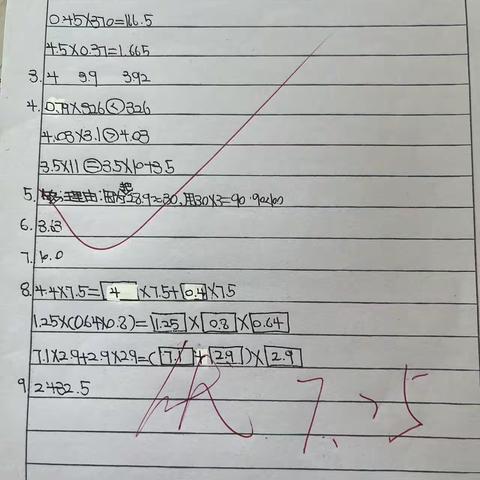 0.45×370=166.5
4.5×0.37=1.665
3. 4 3.9 3.92
4. 0.79×326<326
4.03×3.1>4.03
3.5×11=3.5×10+3.5
5. 理由:把28.9≈30,用30×3=90.90<100
6. 3.63
7. 6.0
8. 4.4×7.5=4×7.5+0.4×7.5
1.25×(0.64×0.8)=1.25×0.8×0.64
7.1×2.9+2.9×2.9=(7.1+2.9)×2.9
9. 2432.5
7.25